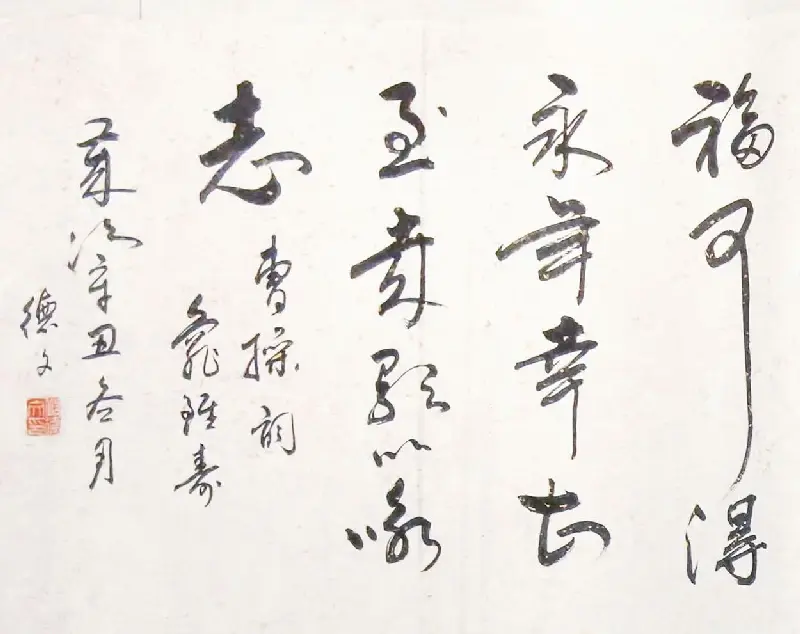 福可得
永年幸甚
至哉歌以咏
志
曹操詞
龜雖壽
歲次辛丑冬月
德文